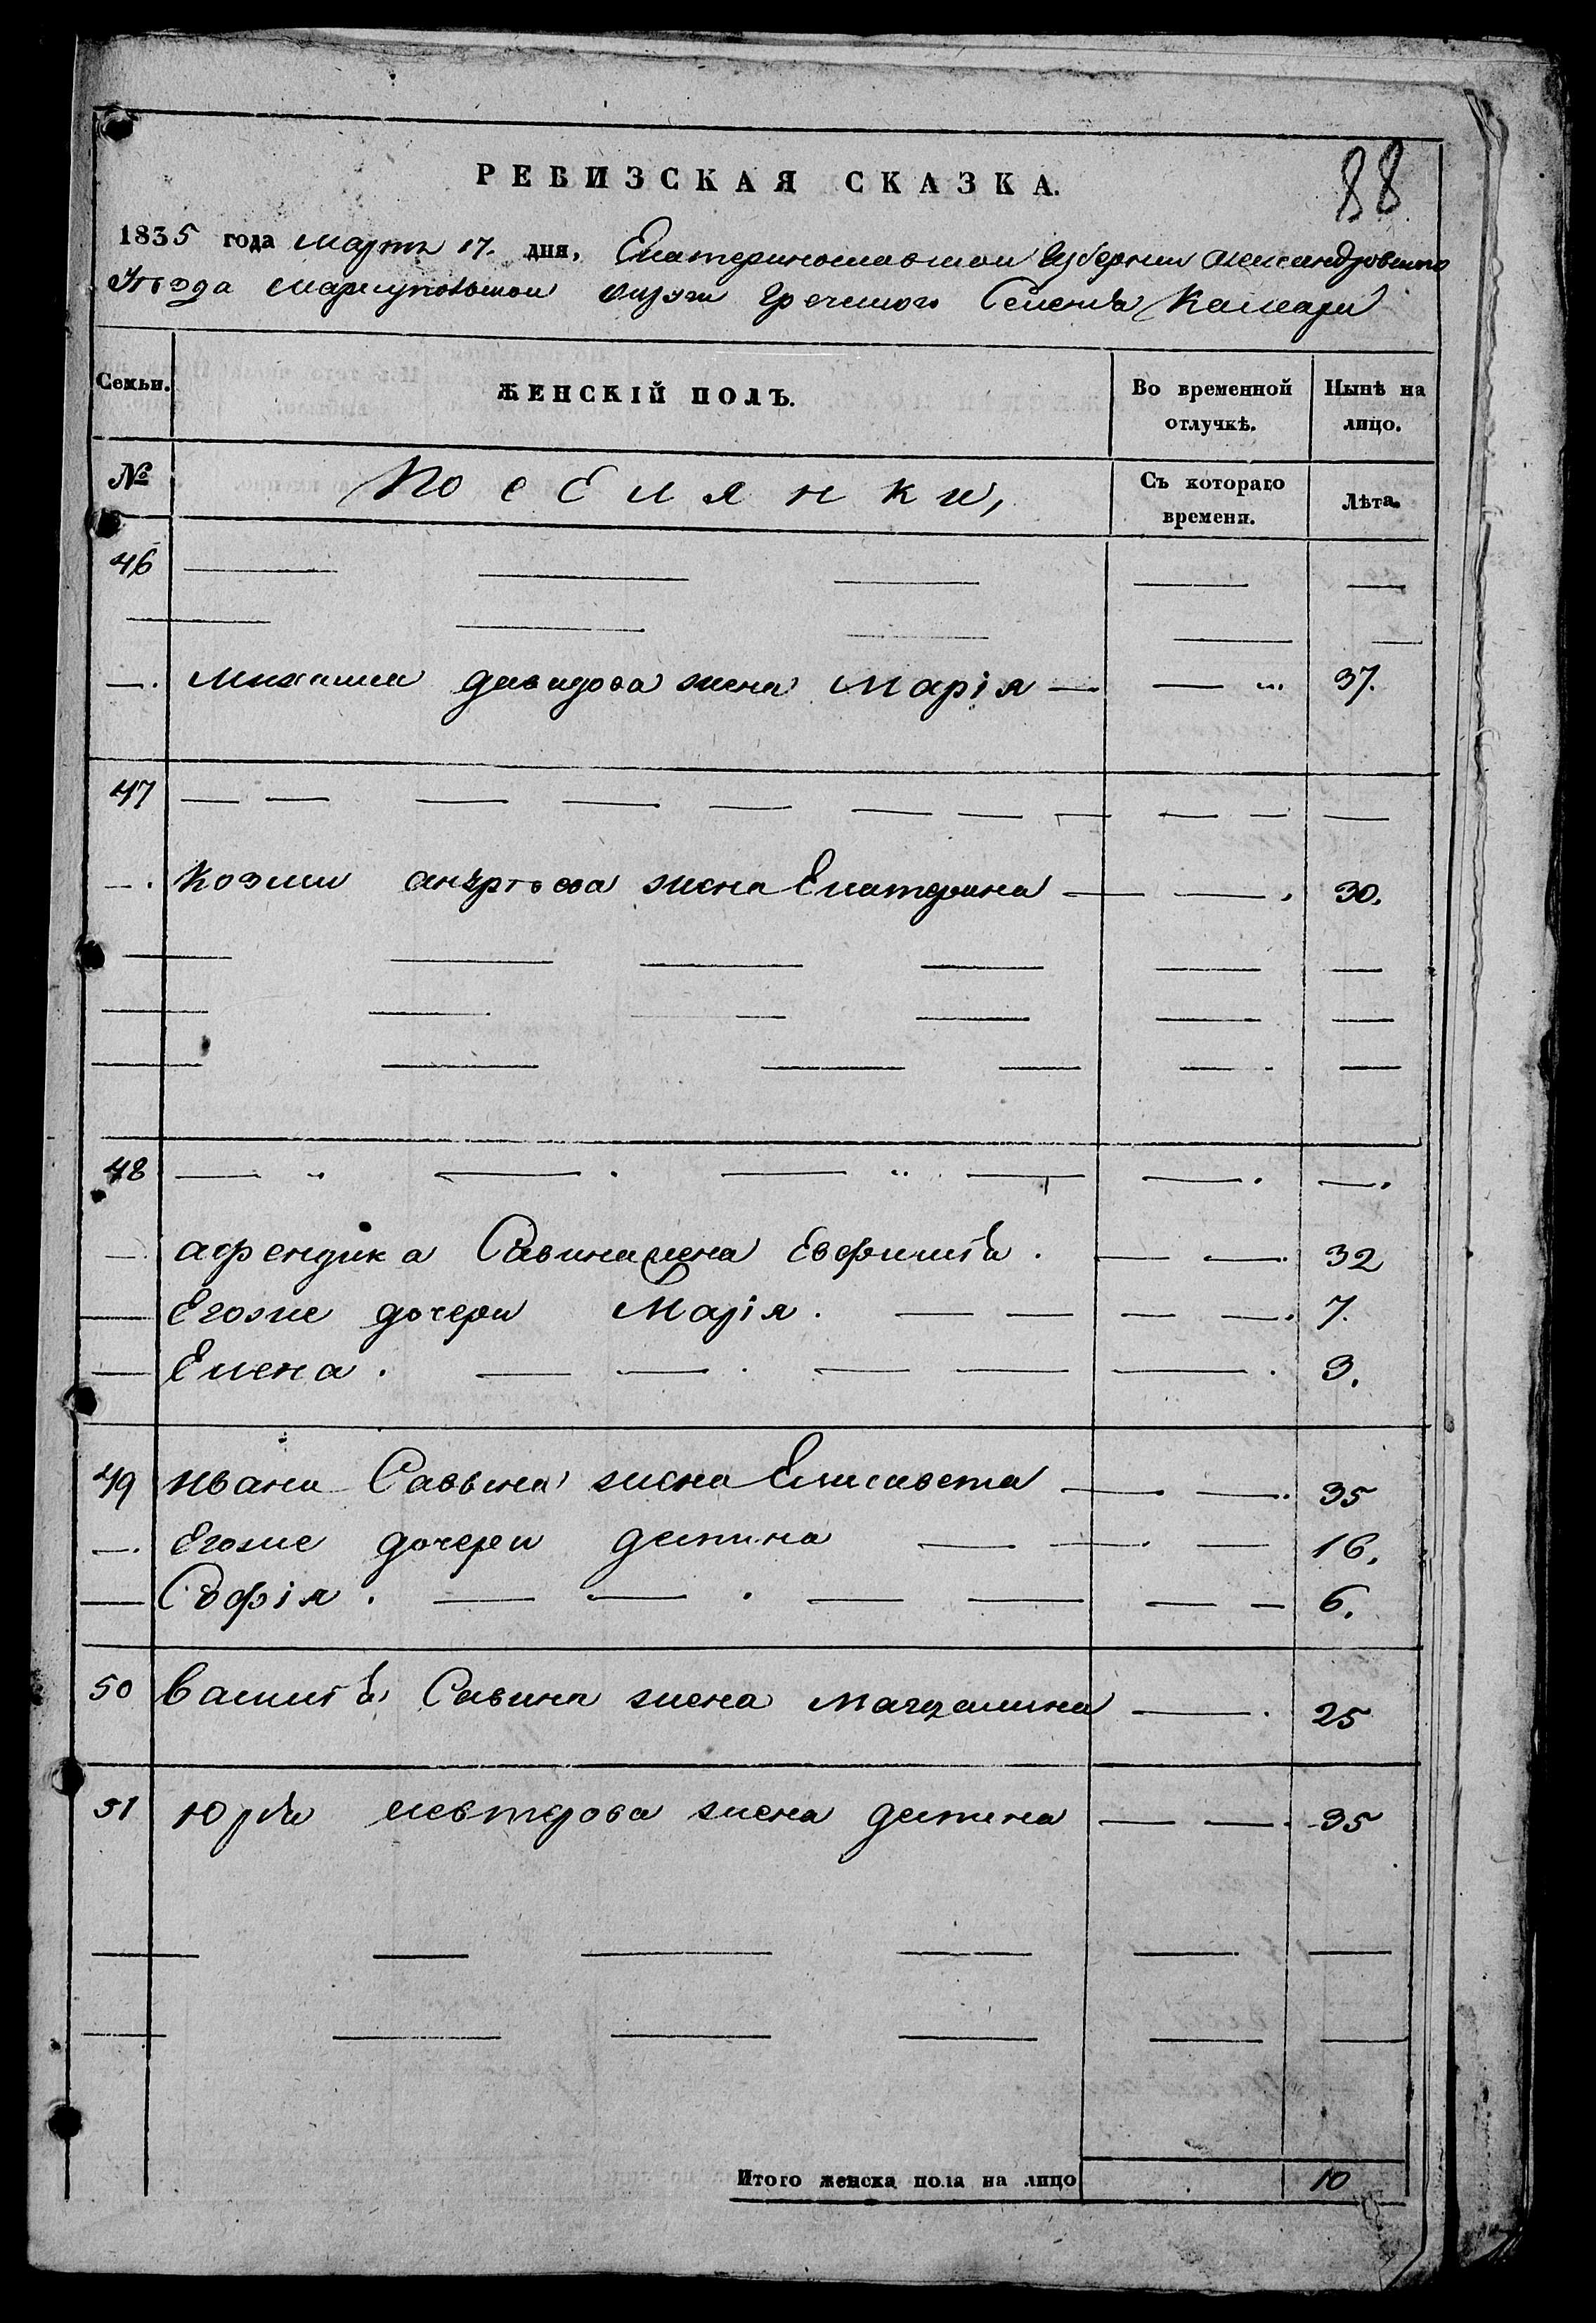 88
РЕВИЗСКАЯ СКАЗКА.
1835 года Мартъ 17. дня, Екатеринославской Губернии Александровскаго
Уѣзда Мариупольской округи Греческого Селенія Камари
Семьи. ЖЕНСКІЙ ПОЛЪ. Во временной отлучкѣ. Нынѣ на лицо.
№ Поселянки, Съ котораго времени. Лѣта.
46 — — — — —
— — — — —
—. Михаила Давидова жена Марія — — 37.
47 — — — — — — — — — — —
—. Козми жена Екатерина — — 30.
— — — — — —
— — — — — —
— — — — — —
48 — — — — — —.
— Афендика Савина жена Евфимія. — — 32
— Егоже дочери Марія. — — — — 7.
— Елена. — — — — — 3.
49 Ивана Саввина жена Елисавета — — 35
—. Егоже дочери Деспина — — — 16.
— Софія. — — — — — — 6.
50 Василія Савина жена Магдалина — 25
51 Юрія Левтерова жена Деспина — — 35
— — — — — —
— — — — — —
Итого женска пола на лицо 10